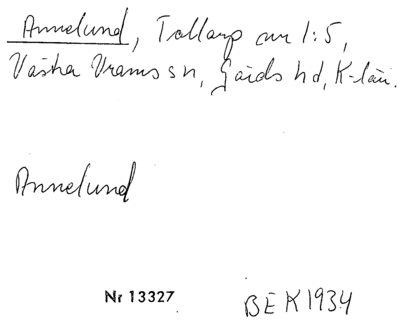 Annelund, Tollarp av 1:5,
Västra Vrams sn, Gärds hd, K-län.
Annelund
Nr 13327
BEK 1934